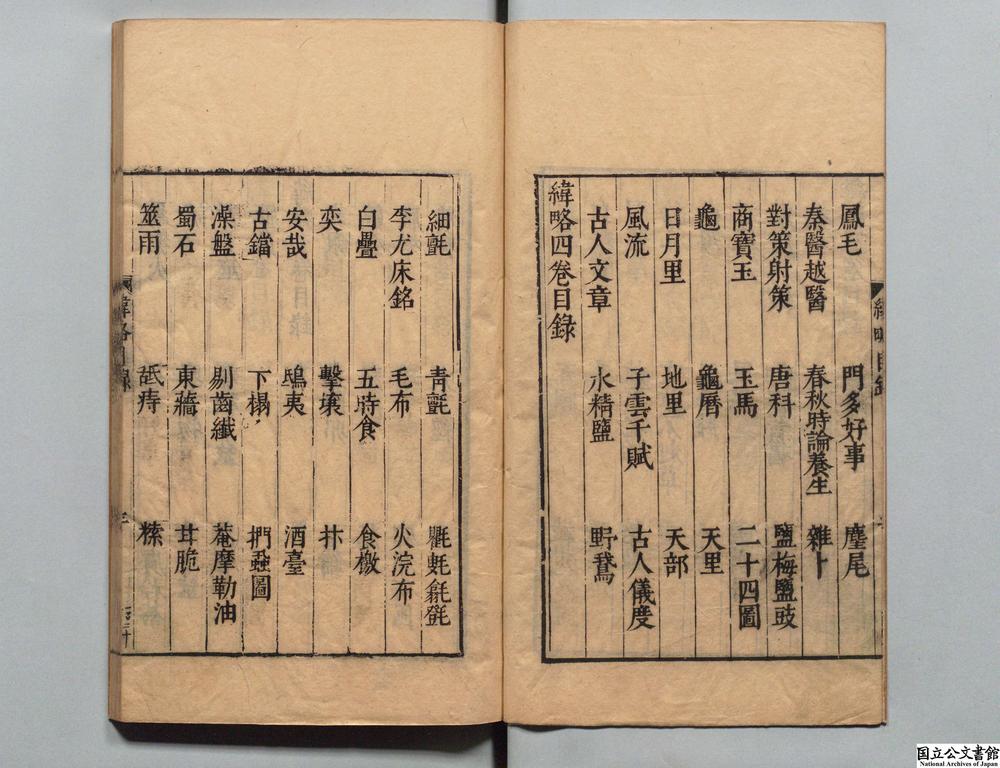 鳳毛 門多好事 麈尾
秦醫越醫 春秋時論養生 雜卜
對策射策 唐科 鹽梅鹽豉
商寶玉 玉馬 二十四圖
龜 龜曆 天里
日月里 地里 天部
風流 子雲千賦 古人儀度
古人文章 水精鹽 野鵞
緯略四卷目錄
緯略目錄
細氈 青氈
李尤床銘 毛布 火浣布
白疊 五時食 食檄
奕 擊壤 抃
安哉 鴟夷 酒臺
古鐺 下榻 捫蝨圖
澡盤 剔齒纖 菴摩勒油
蜀石 東牆 甘脆
筮雨 舐痔
緯略目錄
国立公文書館
National Archives of Japan